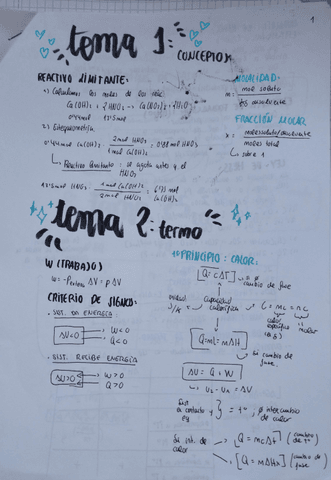 1
tema 1: CONCEPTOS
REACTIVO LIMITANTE:
1) Calculamos los moles de los reac.
Ca(OH)₂ + 2HNO₃ → Ca(NO₃)₂ + 2H₂O
0'44mol
2) Estequiometría
0'44 mol Ca(OH)₂ · 2mol HNO₃ / 1mol Ca(OH)₂ = 0'88 mol HNO₃
↳ Reactivo limitante: se agota antes y el
HNO₃
1mol Ca(OH)₂ / 2mol HNO₃
Ca(OH)₂
MOLALIDAD:
m = mol soluto / kg disolvente
FRACCIÓN MOLAR
x = moles soluto/disolvente / moles total
↳ sobre 1
tema 2: termo
W (TRABAJO)
W = -Pextena ΔV = p ΔV
CRITERIO DE SIGNOS:
· SIST. DA ENERGÍA
ΔU<0 W<0
Q<0
· SIST. RECIBE ENERGÍA
ΔU>0 W>0
Q>0
1º PRINCIPIO: CALOR:
Q = CΔT → si ∅
cambio de fase
unidad
J/K
capacidad
calorífica
C = mc = nc
calor
específico
molar
Q = nL = nΔH
↳ si cambio de
fase.
ΔU = Q + W
↳ U₂ - U₁ = ΔU
Sist.
en contacto y
eq
= tª, ∅ intercambio
de calor
Si int. de
calor
Q = mcΔt (cambio
de tª)
(cambio de
fase)